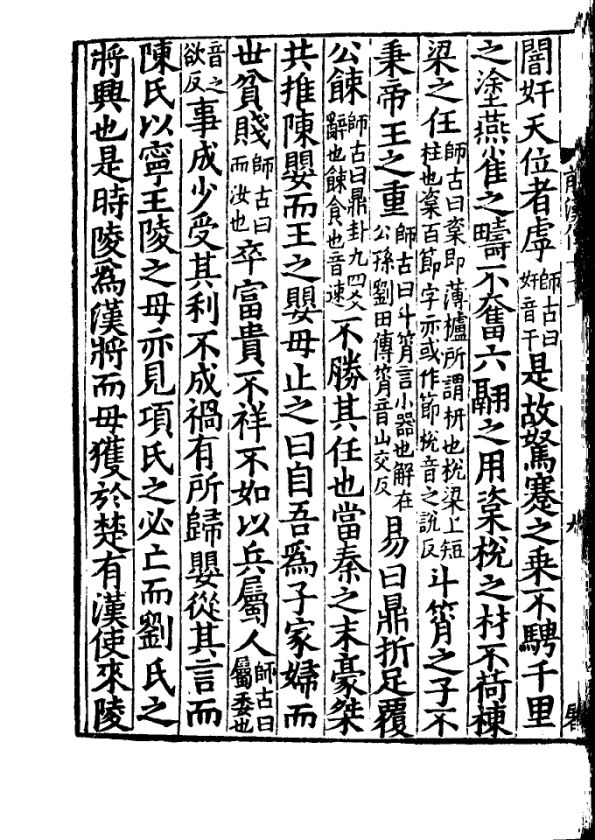 闇奸天位者虖師古曰奸音干是故駑蹇之乗不騁千里
之塗燕雀之疇不奮六翮之用楶梲之材不荷棟
梁之任師古曰楶即薄櫨所謂枅也梲梁上短柱也楶百節字亦或作節梲音之說反斗筲之子不
秉帝王之重師古曰斗筲言小器也解在公孫劉田傳筲音山交反易曰鼎折足覆
公餗師古曰鼎卦九四爻辭也餗食也音速不勝其任也當秦之末豪桀
共推陳嬰而王之嬰母止之曰自吾爲子家婦而
世貧賤師古曰而汝也卒富貴不祥不如以兵屬人師古曰屬委也
音之欲反事成少受其利不成禍有所歸嬰從其言而
陳氏以寧王陵之母亦見項氏之必亡而劉氏之
將興也是時陵爲漢將而母獲於楚有漢使來陵